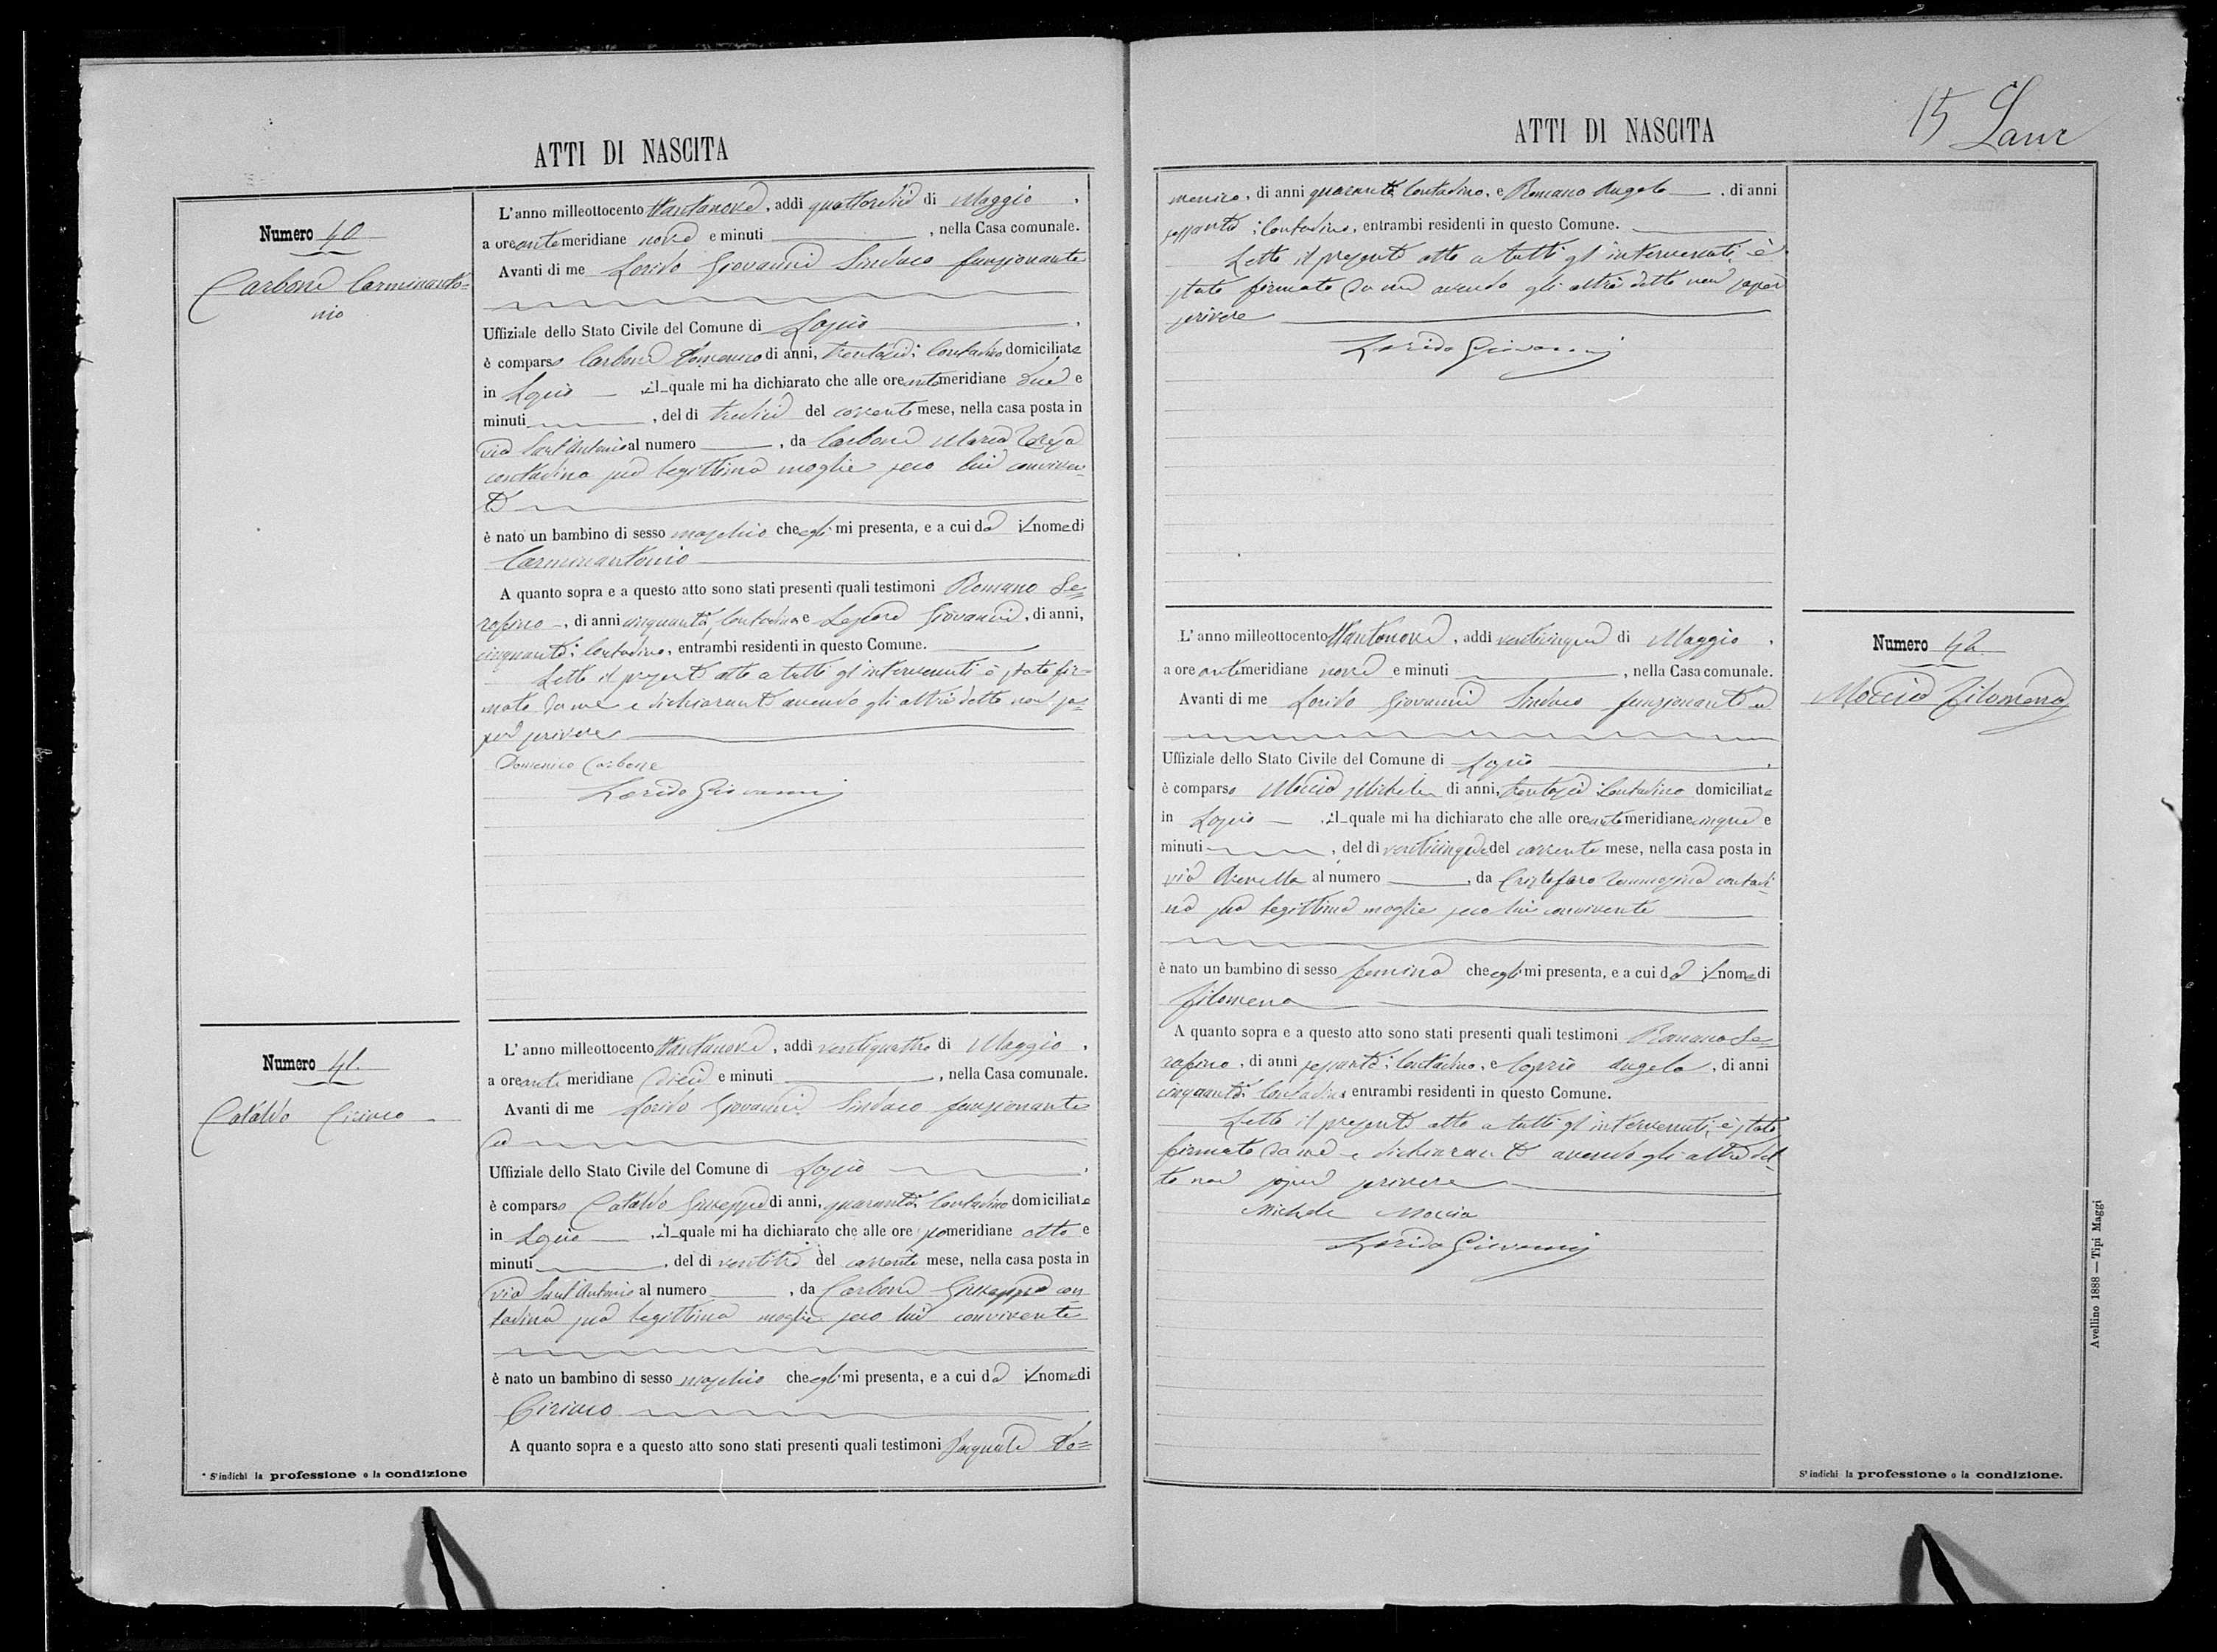 ATTI DI NASCITA
Numero 40
Carbone Carminanto=
nio
L'anno milleottocento ottantanove, addì quattordici di Maggio,
a ore antemeridiane nove e minuti, nella Casa comunale.
Avanti di me Lorido Giovanni Sindaco funzionante
Uffiziale dello Stato Civile del Comune di Lapio.
è comparso Carbone Domenico di anni, trentasei: Contadino domiciliato
in Lapio, il quale mi ha dichiarato che alle ore antemeridiane due e
minuti, del dì tredici del corrente mese, nella casa posta in
via Sant'Antonio al numero, da Carbone Maria Teresa
contadina sua legittima moglie seco lui conviven-
te
è nato un bambino di sesso maschio che egli mi presenta, e a cui dà il nome di
Carminantonio
A quanto sopra e a questo atto sono stati presenti quali testimoni Romano Se=
rafino, di anni cinquanta, Contadino e Lepore Giovanni, di anni,
cinquanta: Contadino, entrambi residenti in questo Comune.
Letto il presente atto a tutti gl'intervenuti è stato fir=
mato da me e dichiarante avendo gli altri detto non sa=
per scrivere
Domenico Carbone
Lorido Giovanni
Numero 41.
Cataldo Ciriaco
L'anno milleottocento ottantanove, addì ventiquattro di Maggio,
a ore ante meridiane dieci e minuti, nella Casa comunale.
Avanti di me Lorido Giovanni Sindaco funzionante
ed
Uffiziale dello Stato Civile del Comune di Lapio.
è comparso Cataldo Giuseppe di anni, quaranta: Contadino domiciliato
in Lapio, il quale mi ha dichiarato che alle ore pomeridiane otto e
minuti, del dì ventitre del corrente mese, nella casa posta in
via Sant'Antonio al numero, da Carbone Giuseppa con
tadina sua legittima moglie seco lui convivente
è nato un bambino di sesso maschio che egli mi presenta, e a cui dà il nome di
Ciriaco
A quanto sopra e a questo atto sono stati presenti quali testimoni Pasquale Do=
* S'indichi la professione o la condizione
ATTI DI NASCITA
15
menico, di anni quaranta Contadino, e Romano Angelo, di anni
sessanta: Contadino, entrambi residenti in questo Comune.
Letto il presente atto a tutti gl'intervenuti, è
stato firmato da me avendo gli altri detto non saper
scrivere
Lorido Giovanni
L'anno milleottocento ottantanove, addì venticinque di Maggio,
a ore antimeridiane nove e minuti, nella Casa comunale.
Avanti di me Lorido Giovanni Sindaco funzionante ed
Uffiziale dello Stato Civile del Comune di Lapio.
è comparso Moccia Michele di anni, trentasei: Contadino domiciliato
in Lapio, il quale mi ha dichiarato che alle ore antemeridiane cinque e
minuti, del dì venticinque del corrente mese, nella casa posta in
via al numero, da Cristofaro Tommasina contadi-
na sua legittima moglie seco lui convivente
è nato un bambino di sesso femina che egli mi presenta, e a cui dà il nome di
Filomena
A quanto sopra e a questo atto sono stati presenti quali testimoni Romano Se=
rafino, di anni sessanta: Contadino, e Angelo, di anni
cinquanta: Contadino entrambi residenti in questo Comune.
Letto il presente atto a tutti gl'intervenuti, è stato
firmato da me e dichiarante avendo gli altri det
to non saper scrivere
Michele Moccia
Lorido Giovanni
Numero 42.
Moccia Filomena
S'indichi la professione o la condizione.
Avellino 1888 — Tipi Maggi